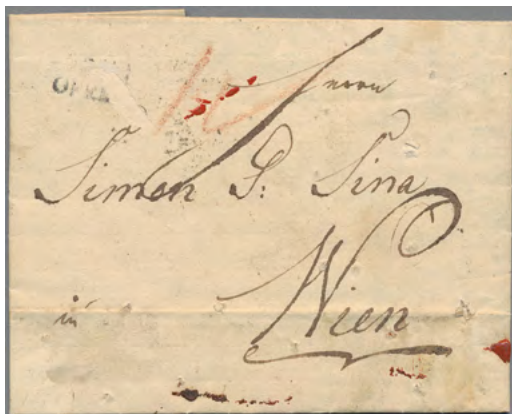 Herrn
Simon G: Sina
in
Wien